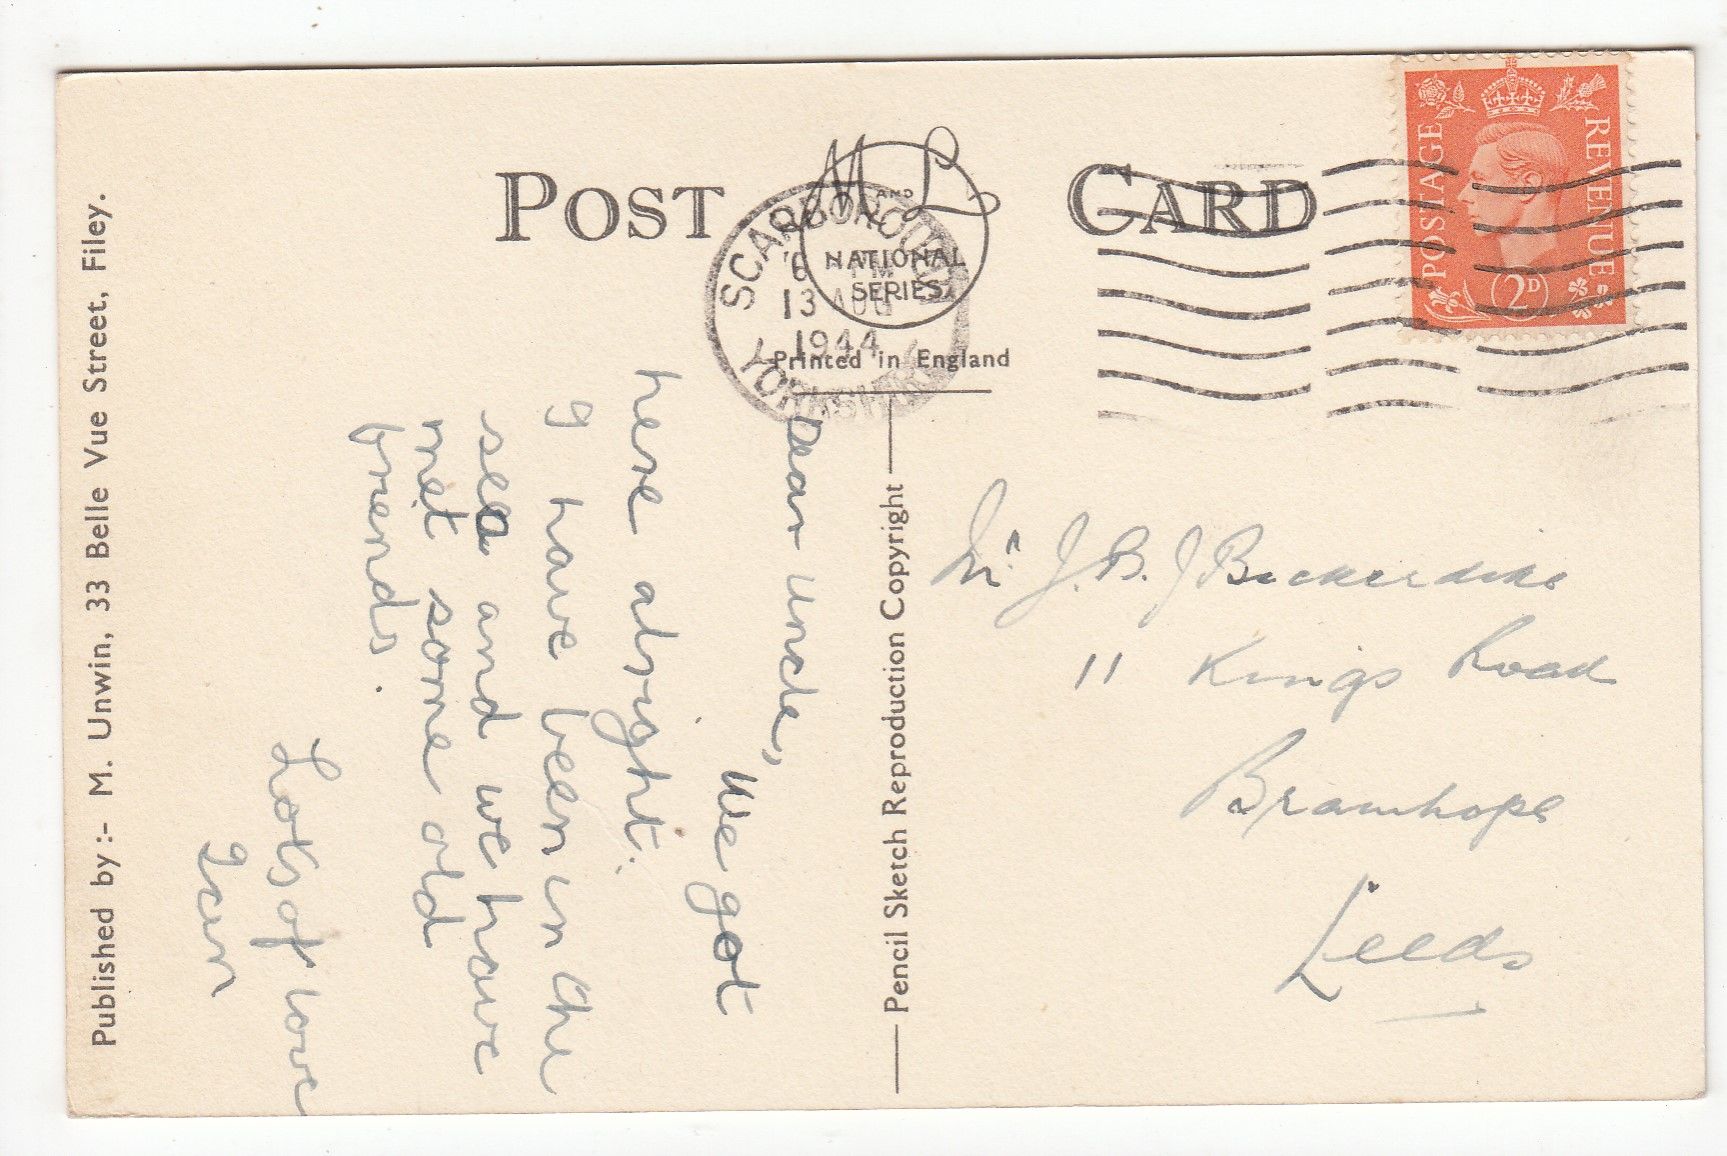 POST CARD
M AND L
NATIONAL
SERIES
Printed in England
SCARBOROUGH
YORKSHIRE
13 AUG
1944
POSTAGE
REVENUE
2D
Published by :- M. Unwin, 33 Belle Vue Street, Filey.
Pencil Sketch Reproduction Copyright
Dear uncle,
We got
here alright.
I have been in the
sea and we have
met some old
friends.
Lots of love
Ian
J. B. J Bickerdike
11 Kings Road
Bramhope
Leeds